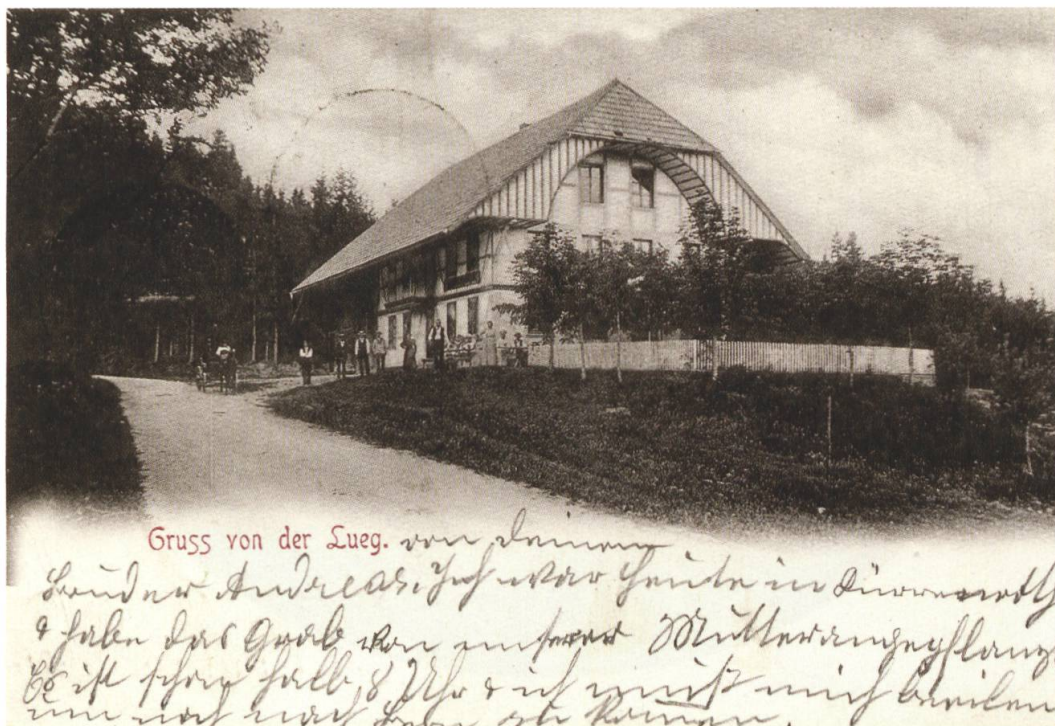 Gruss von der Lueg. von deinem
Bruder Andreas. Ich war heute in Dürrenroth
& habe das Grab von unserer Mutter angepflanz
Es ist schon halb 8 Uhr & ich muß mich beeilen
um noch nach zu komen.